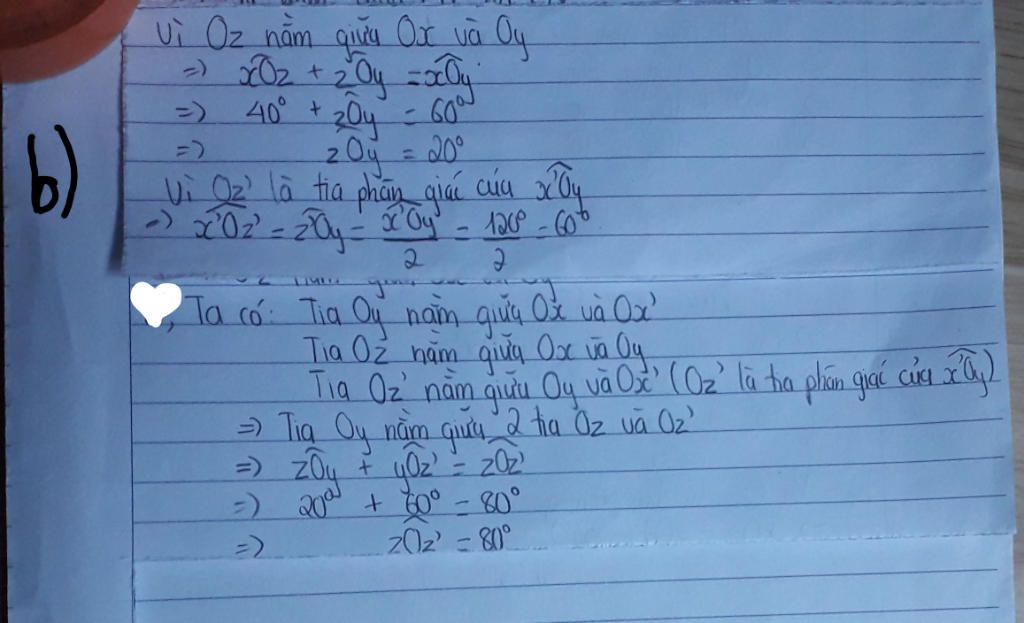 Vì Oz nằm giữa Ox và Oy
=> xOz + zOy = xOy
=> 40° + zOy = 60°
=> zOy = 20°
b)
Vì Oz' là tia phân giác của x'Oy
=> x'Oz' = zOy = x'Oy/2 = 120°/2 = 60°
Ta có: Tia Oy nằm giữa Ox và Ox'
Tia Oz nằm giữa Ox và Oy
Tia Oz' nằm giữa Oy và Ox' (Oz' là tia phân giác của x'Oy)
=> Tia Oy nằm giữa 2 tia Oz và Oz'
=> zOy + yOz' = zOz'
=> 20° + 60° = 80°
=> zOz' = 80°